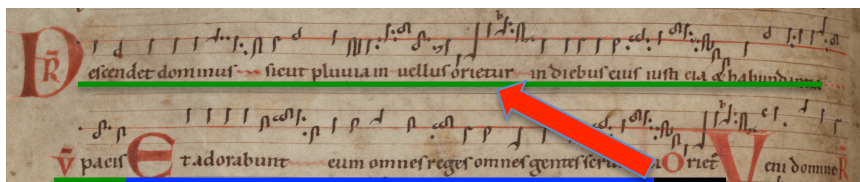 R̄ Descendet dominus sicut pluvia in vellus orietur in diebus eius iusti cia & habundantia
V̄ pacis Et adorabunt eum omnes reges omnes gentes seru oriet Veni domine R̄